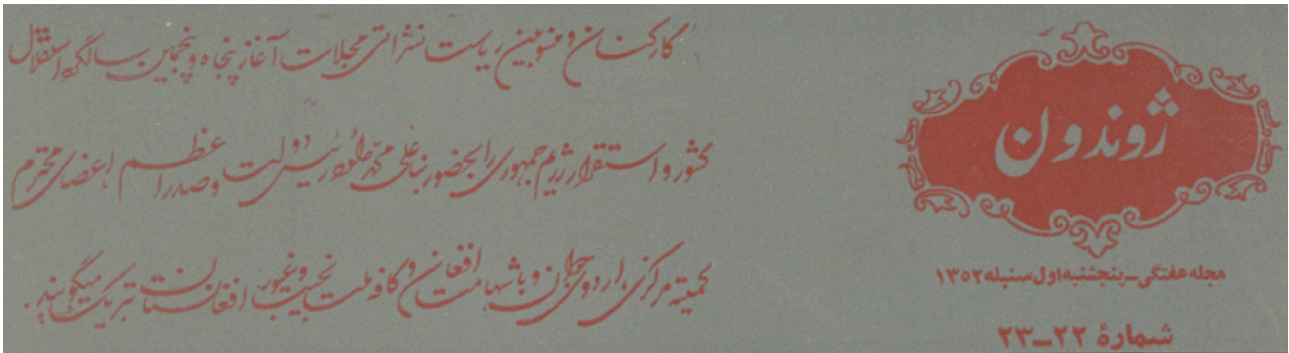 ژوندون
مجله هفتگی ـ پنجشنبه اول سنبله ۱۳۵۲
شمارهٔ ۲۲ـ۲۳
کارکنان و منسوبین ریاست نشراتی مجلات آغاز پنجاه و پنجمین سالگرد استقلال
کشور و استقرار رژیم جمهوری را بحضور ښاغلی محمد داؤد رئیس دولت و صدراعظم، اعضای محترم
کمیته مرکزی، اردوی جوان و با شهامت افغان و کافه ملت نجیب و غیور افغانستان تبریک میگویند.